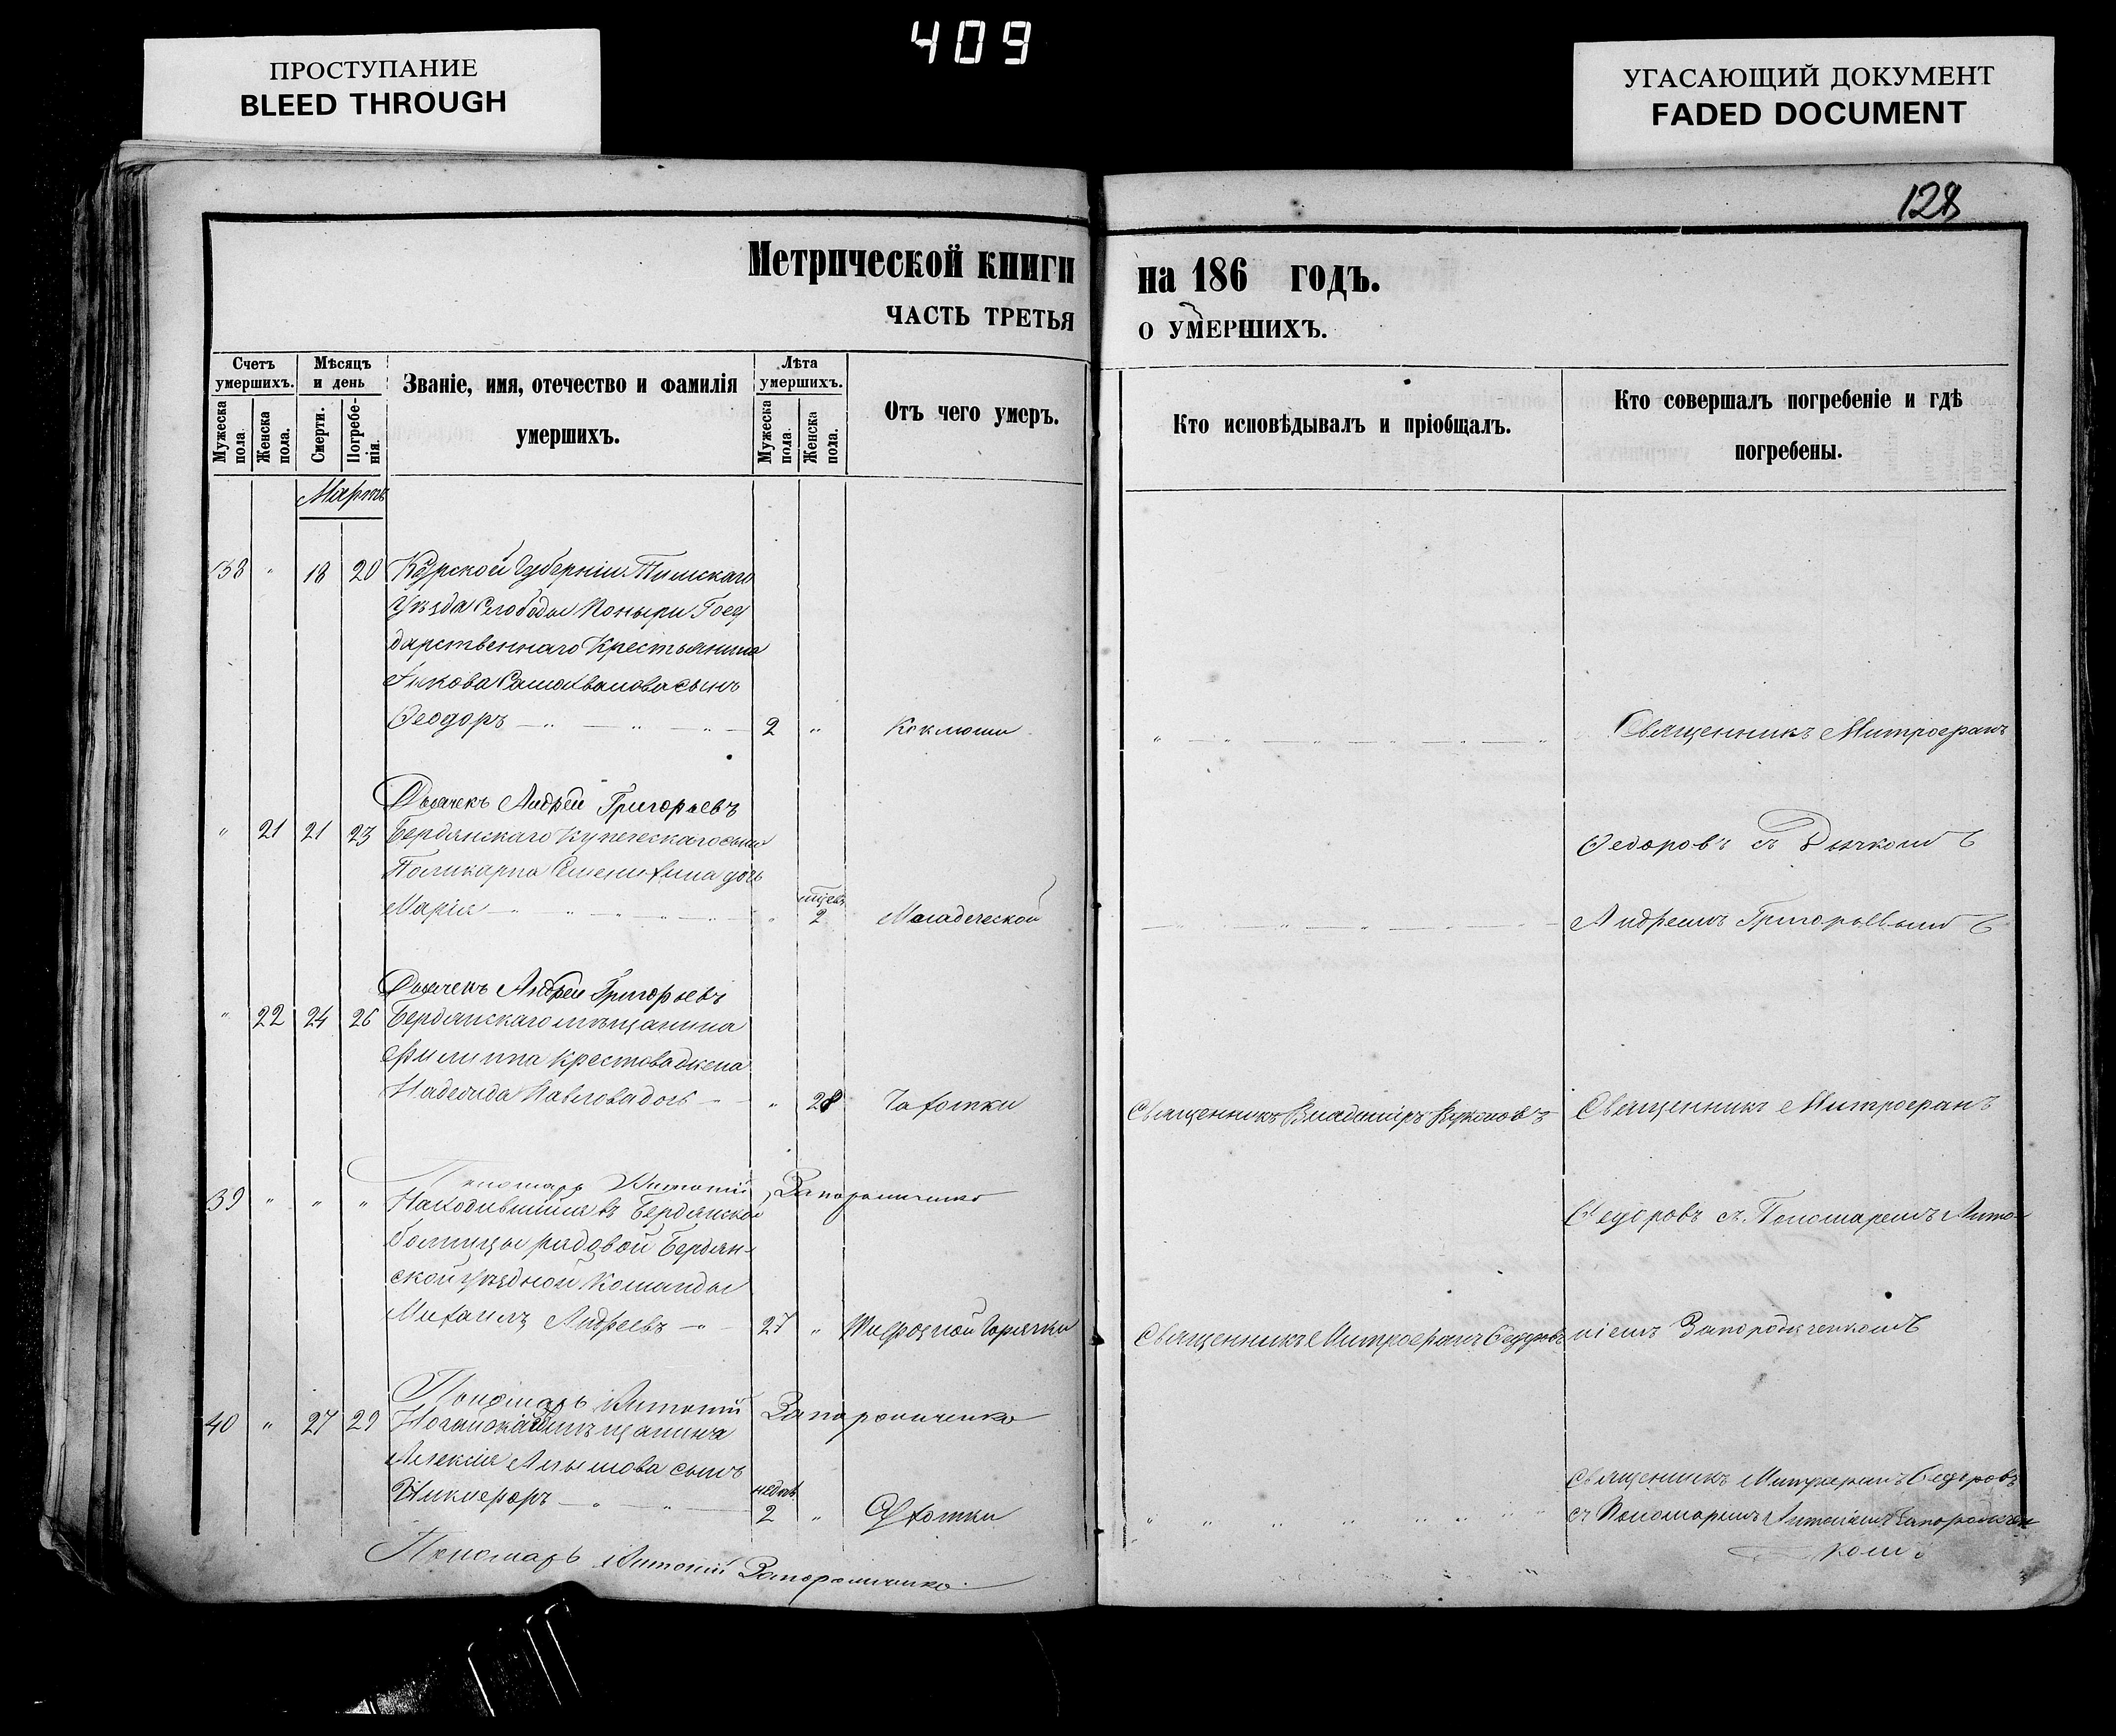 409
ПРОСТУПАНИЕ
BLEED THROUGH
УГАСАЮЩИЙ ДОКУМЕНТ
FADED DOCUMENT
128
Метрической книги на 186 годъ.
ЧАСТЬ ТРЕТЬЯ О УМЕРШИХЪ.
Счетъ умершихъ.
Мужеска пола.
Женска пола.
Мѣсяцъ и день
Смерти.
Погребенія.
Званіе, имя, отечество и фамилія
умершихъ.
Лѣта умершихъ.
Мужеска пола.
Женска пола.
Отъ чего умеръ.
Кто исповѣдывалъ и пріобщалъ.
Кто совершалъ погребеніе и гдѣ
погребены.
Мартъ
38 " 18 20 Курской Губерніи
Уѣзда Слободы Поныри Госу
дарственнаго Крестьянина
сынъ
Ѳеодоръ 2 " Коклюши
Священникъ Митрофанъ
Дьячекъ Андрей Григорьевъ
" 21 21 23 Бердянскаго Купеческаго сына
Поликарпа дочь
Марія " мѣсяц. 2
Ѳедоровъ съ Дьячкомъ
Андреемъ Григорьевымъ
Дьячекъ Андрей Григорьевъ
" 22 24 26 Бердянскаго мѣщанина
Филиппа Крестова жена
Надежда Павлова дочь " 28 Чахотки
Священникъ Владиміръ
Священникъ Митрофанъ
Пономарь Антоній Запорожченко
39 " " " Находившійся въ Бердянской
больницы рядовой Бердян-
ской уѣздной Команды
Михаилъ Андреевъ 27 " горячки
Священникъ Митрофанъ Ѳедоровъ
Ѳедоровъ съ Пономаремъ Анто-
ніемъ Запорожченкомъ
Пономарь Антоній Запорожченко
40 " 27 29 Ногайскаго мѣщанина
Алексія сынъ
Никифоръ недѣль 2 "
Священникъ Митрофанъ Ѳедоровъ
съ Пономаремъ Антоніемъ Запорожчен
комъ
Пономарь Антоній Запорожченко